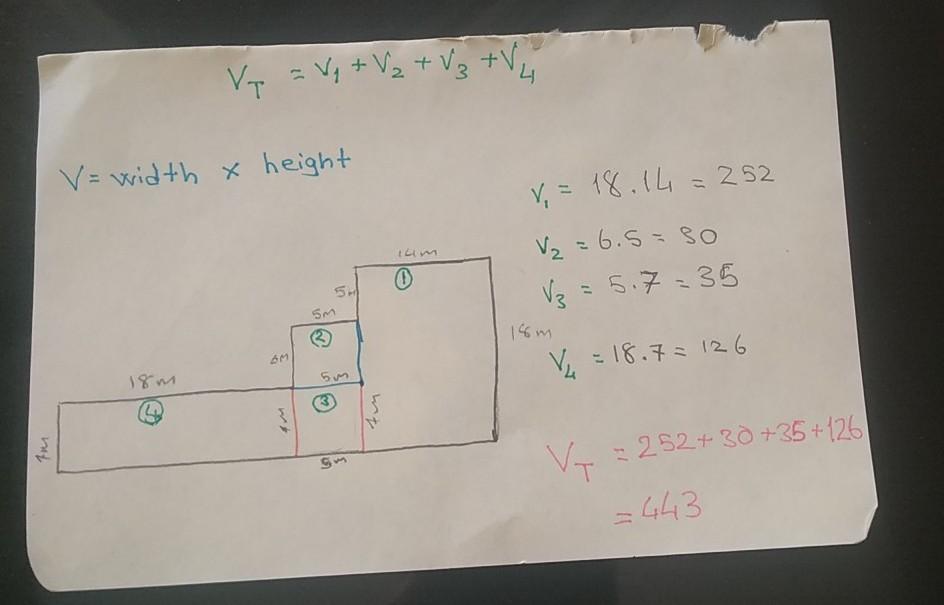 V_T = V_1 + V_2 + V_3 + V_4
V = width x height
V_1 = 18.14 = 252
V_2 = 6.5 = 30
V_3 = 5.7 = 35
V_4 = 18.7 = 126
14m
1
5m
18m
5m
2
6m
18m
5m
4
3
7m
7m
7m
5m
V_T = 252+30+35+126
= 443